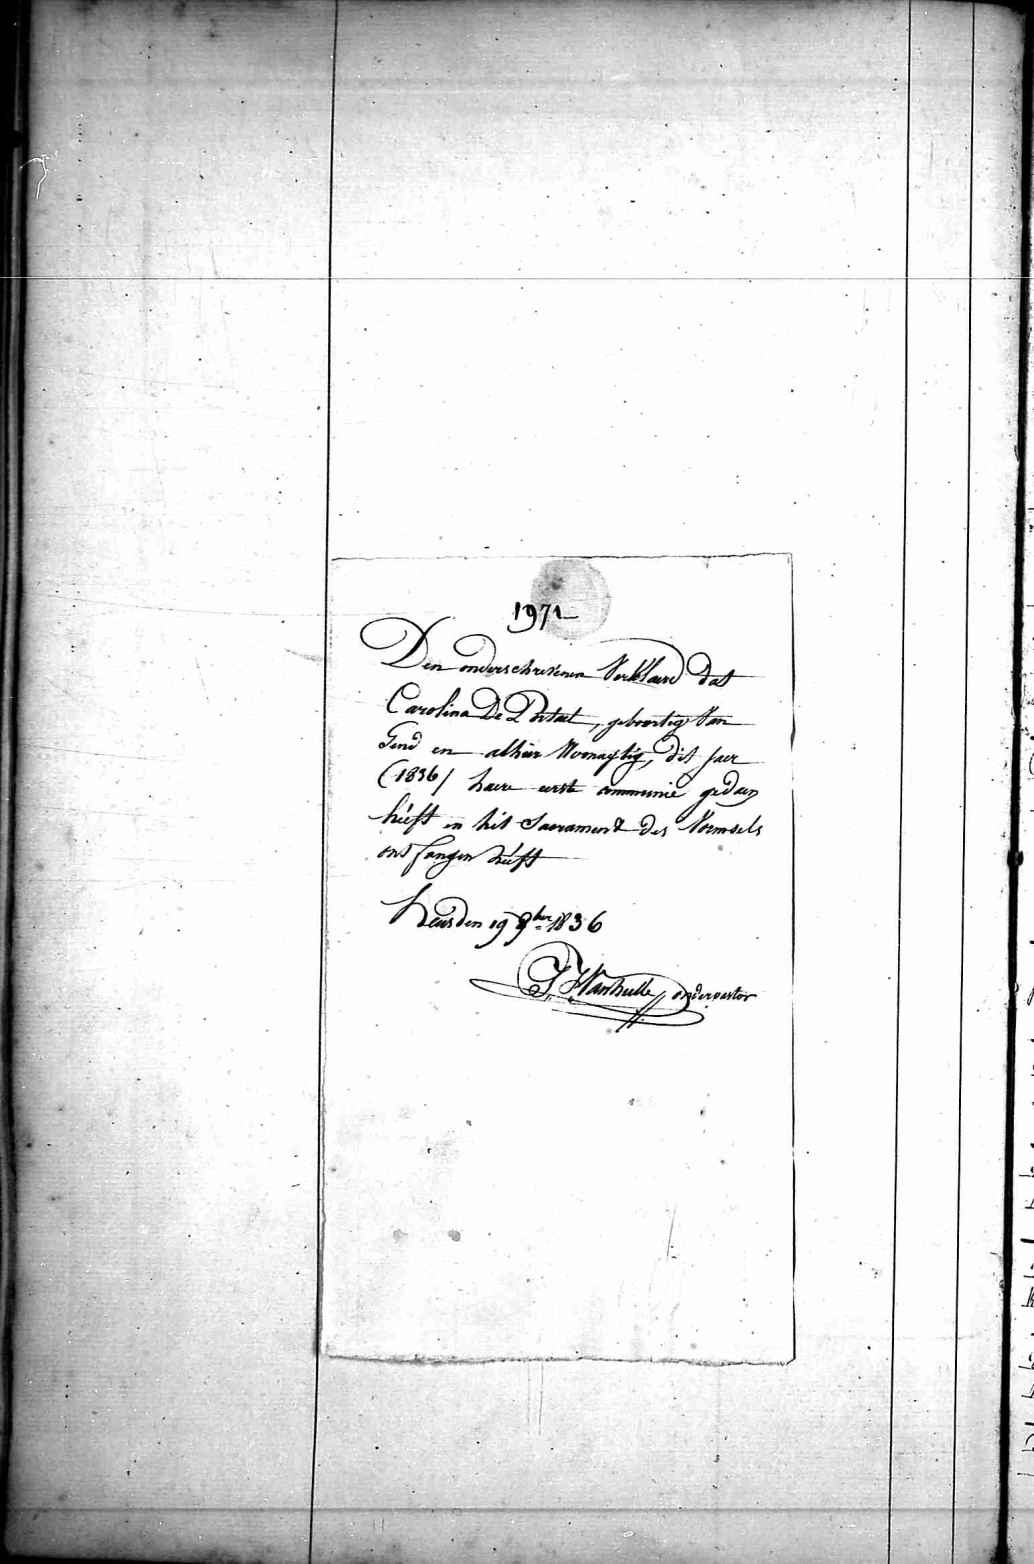 1971
Den onderschrevenen Verklaerd dat
Carolina De Portaet, geboortig Van
Gend en alhier Woonagtig, dit jaer
(1836/ haere eerste communie gedaen
heéft en hit Sacrament des Vormsels
ontfangen heéft
heusden 19 9ber 1836
J. F. Vanhulle onderpastor